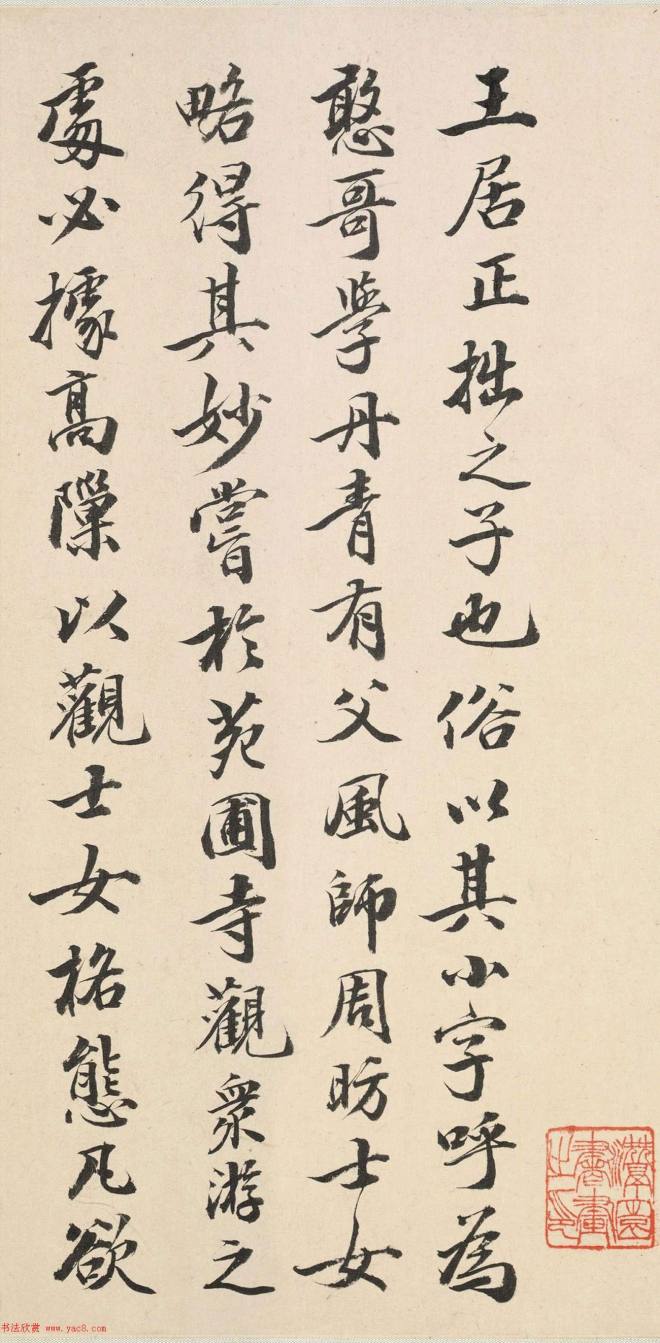 王居正拙之子也俗以其小字呼為
憨哥學丹青有父風師周昉士女
略得其妙嘗於苑圃寺觀眾游之
處必據高隙以觀士女格態凡欲
书法欣赏 www.yac8.com